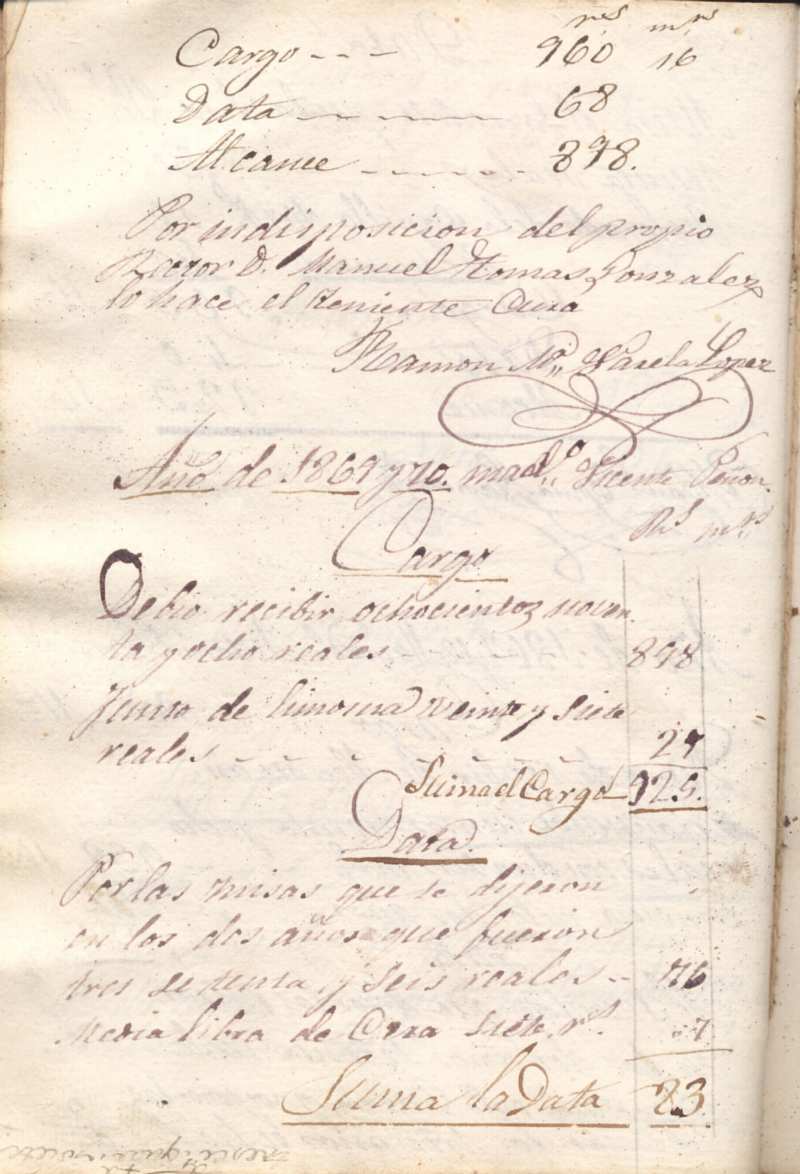 rs mrs
Cargo --- 960 16
Data ---- 68
Alcance ---- 898.
Por indisposicion del propio
Rector D. Manuel Tomas Gonzalez
lo hace el Teniente Cura
Ramon Ma Varela Lopez
Año de 1869 y 70. mado Vicente Peñon.
Rs mrs
Cargo
Debio recibir ochocientoz noven
ta y ocho reales 898
Junto de limosna veinte y siete
reales ------ 27
Suma el Cargo 925.
Data
Por las misas que se dijeron
en los dos años que fueron
tres setenta y seis reales -- 76
Media libra de Cera siete rs. 7
Suma la Data 83